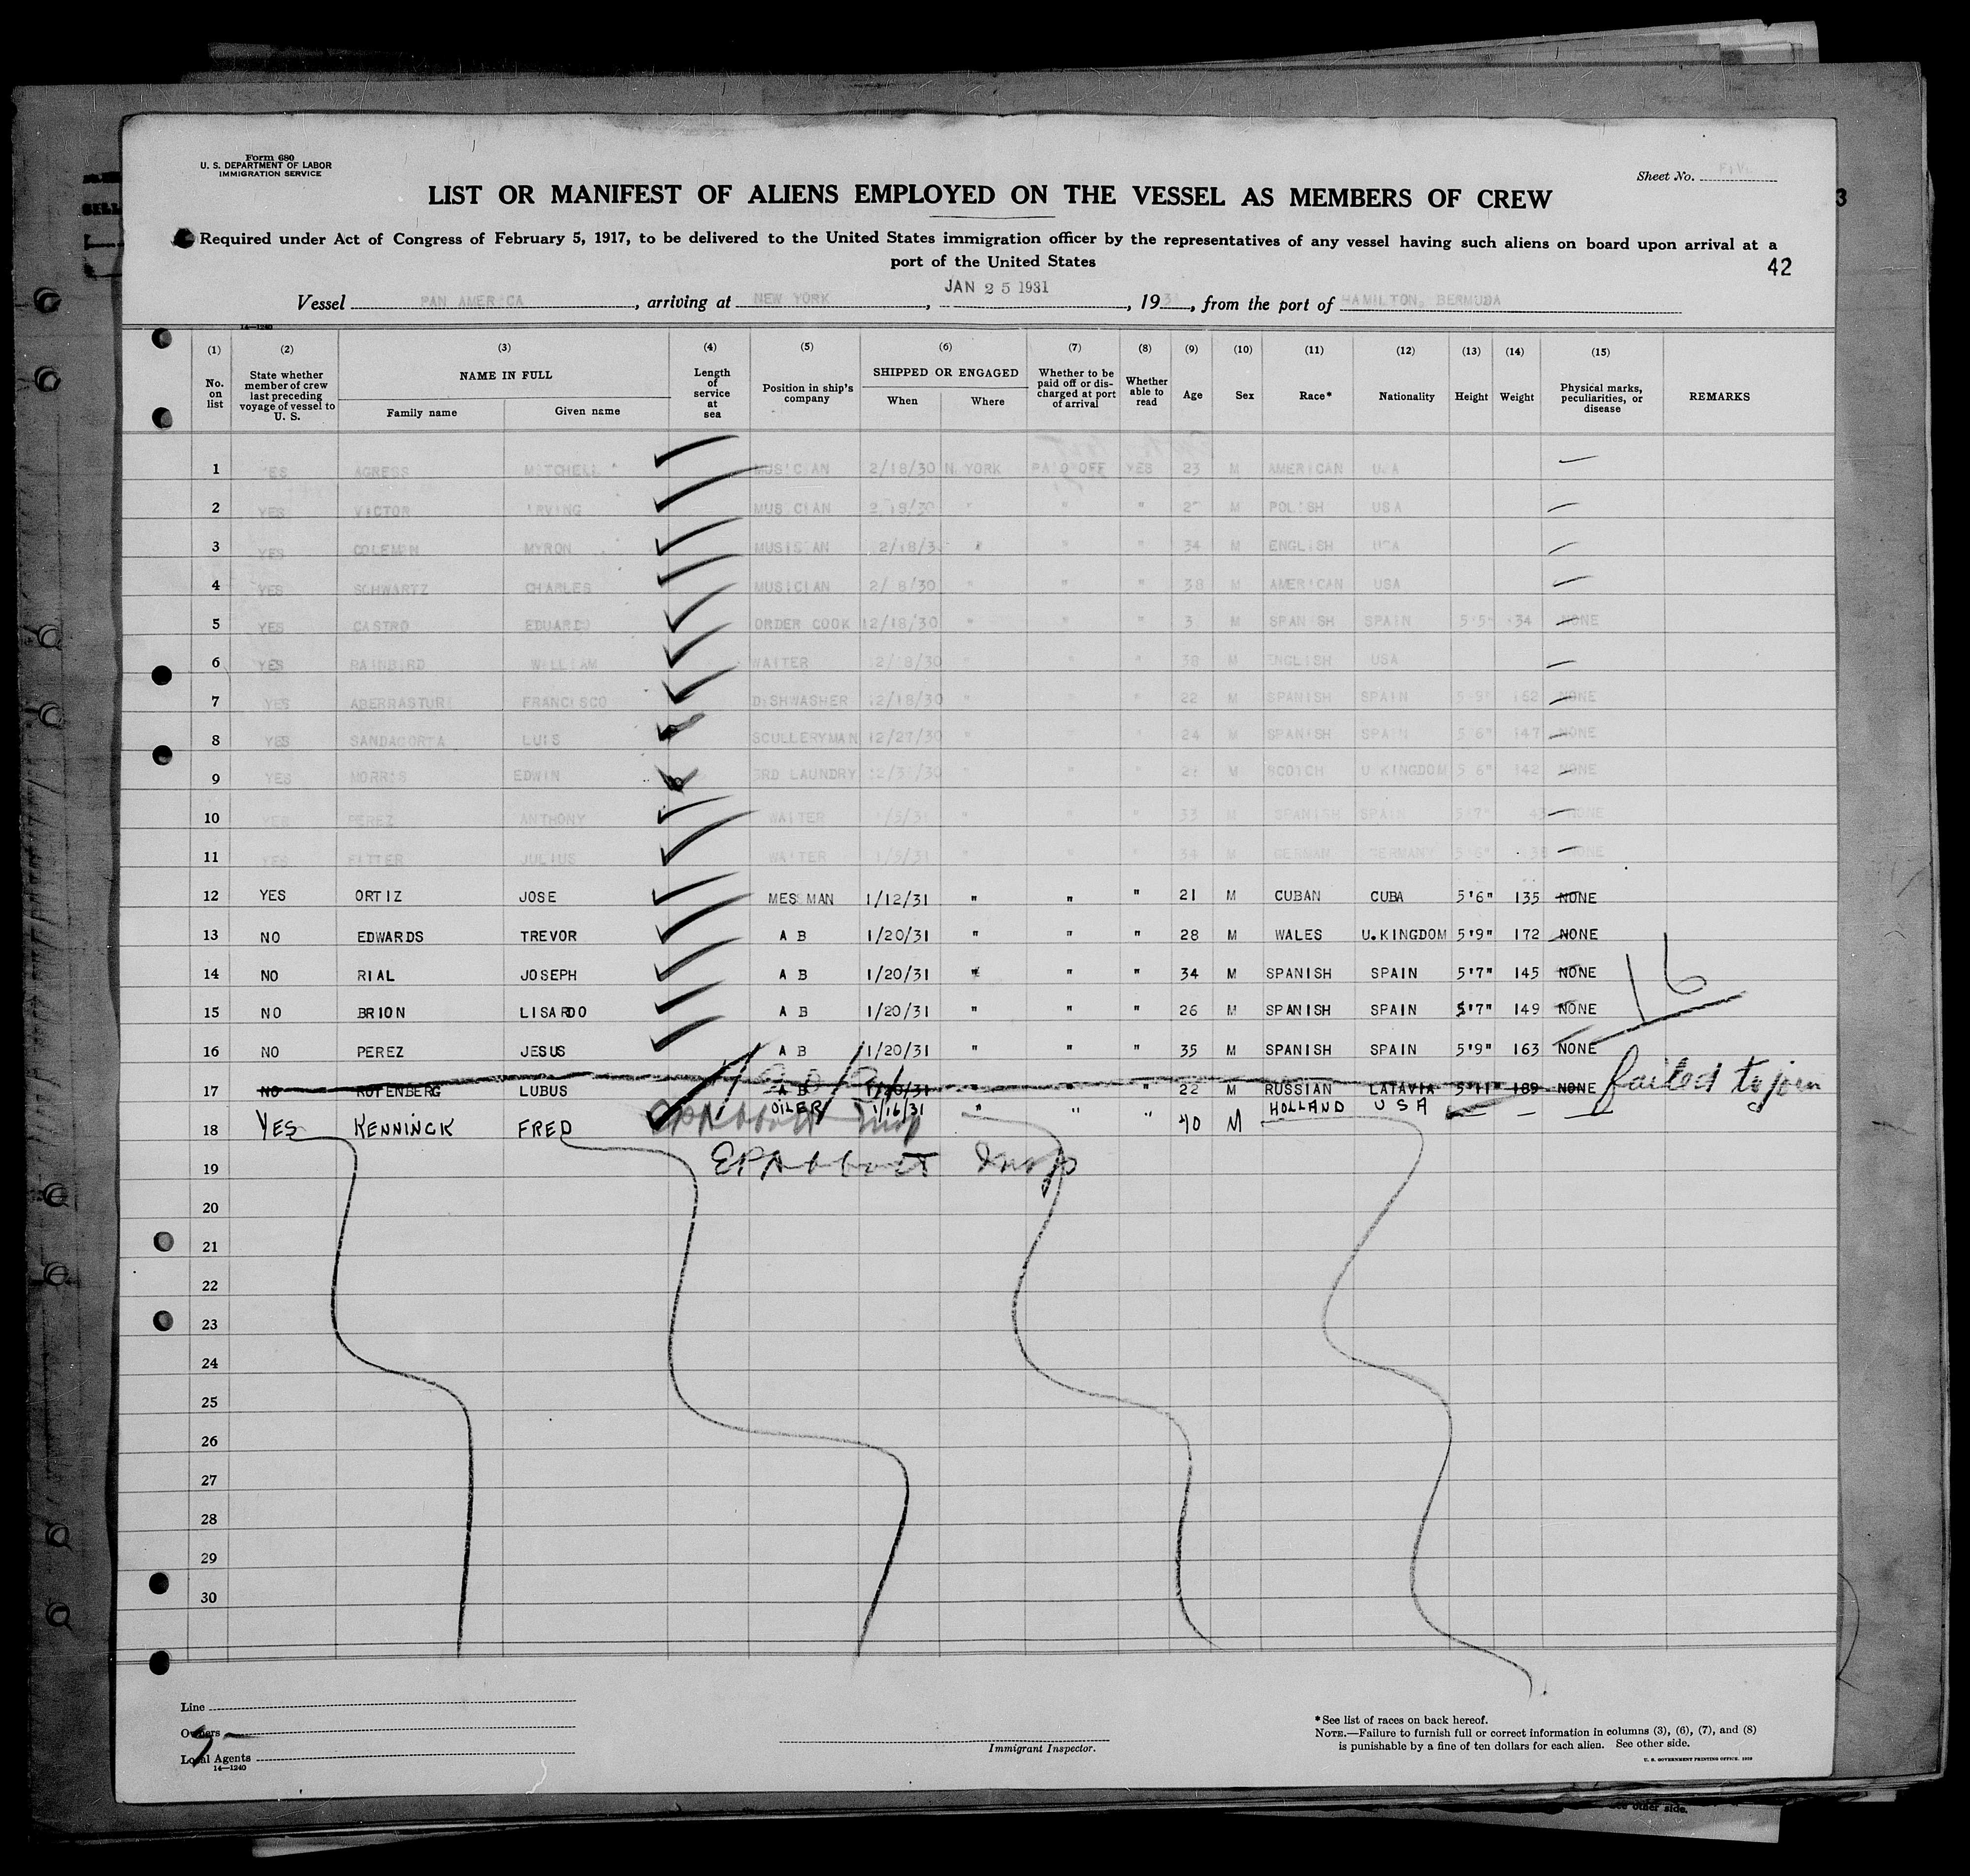 Form 680
U. S. DEPARTMENT OF LABOR
IMMIGRATION SERVICE
Sheet No.
LIST OR MANIFEST OF ALIENS EMPLOYED ON THE VESSEL AS MEMBERS OF CREW
Required under Act of Congress of February 5, 1917, to be delivered to the United States immigration officer by the representatives of any vessel having such aliens on board upon arrival at a
port of the United States
42
Vessel PAN AMERICA, arriving at NEW YORK, JAN 25 1931, 1931, from the port of HAMILTON, BERMUDA
14—1240
(1) (2) (3) (4) (5) (6) (7) (8) (9) (10) (11) (12) (13) (14) (15)
No. on list State whether member of crew last preceding voyage of vessel to U. S. NAME IN FULL Family name Given name Length of service at sea Position in ship's company SHIPPED OR ENGAGED When Where Whether to be paid off or discharged at port of arrival Whether able to read Age Sex Race* Nationality Height Weight Physical marks, peculiarities, or disease REMARKS
1 YES AGRESS MITCHELL MUSICIAN 2/18/30 N.YORK PAID OFF YES 23 M AMERICAN USA
2 YES VICTOR IRVING MUSICIAN 2/18/30 " " " M POLISH USA
3 YES COLEMAN MYRON MUSISIAN " " " 34 M ENGLISH USA
4 YES SCHWARTZ CHARLES MUSICIAN " " " 38 M AMERICAN USA
5 YES CASTRO EDUARDO ORDER COOK 12/18/30 " " " M SPANISH SPAIN 5'5" 134 NONE
6 YES RAINBIRD WILLIAM WAITER 12/18/30 " " " 38 M ENGLISH USA
7 YES ABERRASTURI FRANCISCO DISHWASHER 12/18/30 " " " 22 M SPANISH SPAIN 5'9" 162 NONE
8 YES SANDAGORTA LUIS SCULLERYMAN 12/27/30 " " " 24 M SPANISH SPAIN 5'6" 147 NONE
9 YES MORRIS EDWIN 3RD LAUNDRY 12/31/30 " " " M SCOTCH U KINGDOM 5'6" 142 NONE
10 YES PEREZ ANTHONY WAITER 1/5/31 " " " 33 M SPANISH SPAIN 5'7" NONE
11 YES FITTER JULIUS WAITER 1/5/31 " " " 34 M GERMAN GERMANY 5'6" NONE
12 YES ORTIZ JOSE MESSMAN 1/12/31 " " " 21 M CUBAN CUBA 5'6" 135 NONE
13 NO EDWARDS TREVOR A B 1/20/31 " " " 28 M WALES U.KINGDOM 5'9" 172 NONE
14 NO RIAL JOSEPH A B 1/20/31 " " " 34 M SPANISH SPAIN 5'7" 145 NONE
15 NO BRION LISARDO A B 1/20/31 " " " 26 M SPANISH SPAIN 5'7" 149 NONE
16
16 NO PEREZ JESUS A B 1/20/31 " " " 35 M SPANISH SPAIN 5'9" 163 NONE
17 NO ROTENBERG LUBUS A B 1/20/31 " " " 22 M RUSSIAN LATAVIA 5'11" 189 NONE failed to join
18 YES KENNINCK FRED OILER 1/16/31 " " " 40 M HOLLAND USA — — —
19 EPAbbott Insp
20
21
22
23
24
25
26
27
28
29
30
Line
Owners
Local Agents
14—1240
Immigrant Inspector.
*See list of races on back hereof.
NOTE.—Failure to furnish full or correct information in columns (3), (6), (7), and (8)
is punishable by a fine of ten dollars for each alien. See other side.
U. S. GOVERNMENT PRINTING OFFICE: 1929
See other side.